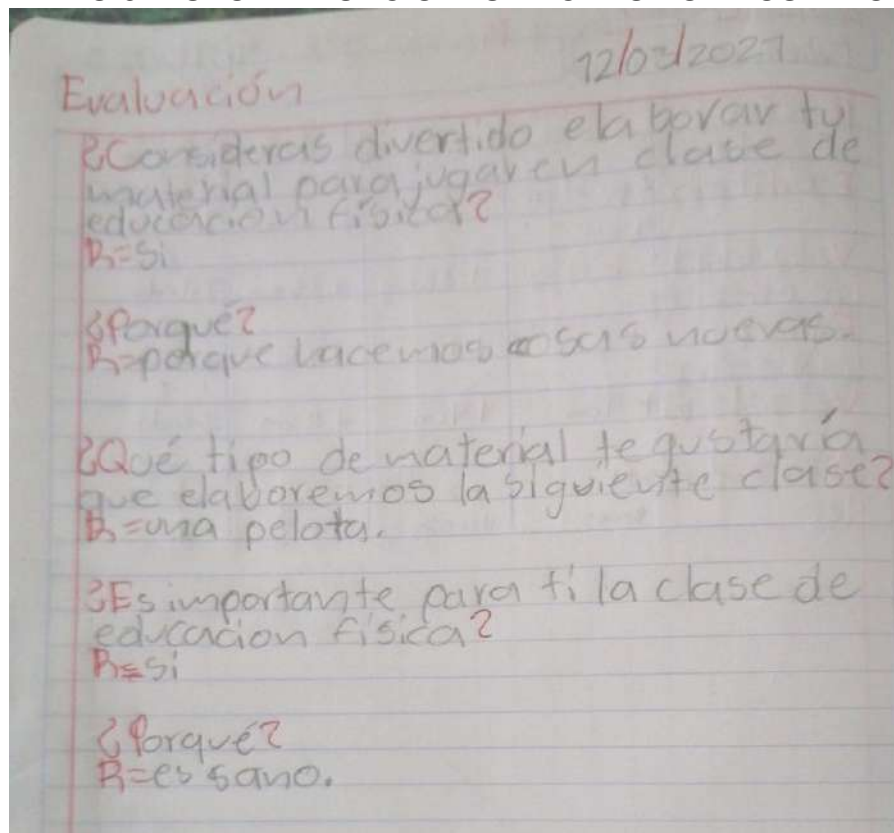 12/03/2021
Evaluación
¿Consideras divertido elaborar tu
material para jugar en clase de
educacion física?
R=Si
¿Porqué?
R=porque hacemos cosas nuevas.
¿Qué tipo de material te gustaría
que elaboremos la siguiente clase?
R=una pelota.
¿Es importante para ti la clase de
educacion física?
R=Si
¿Porqué?
R=es sano.